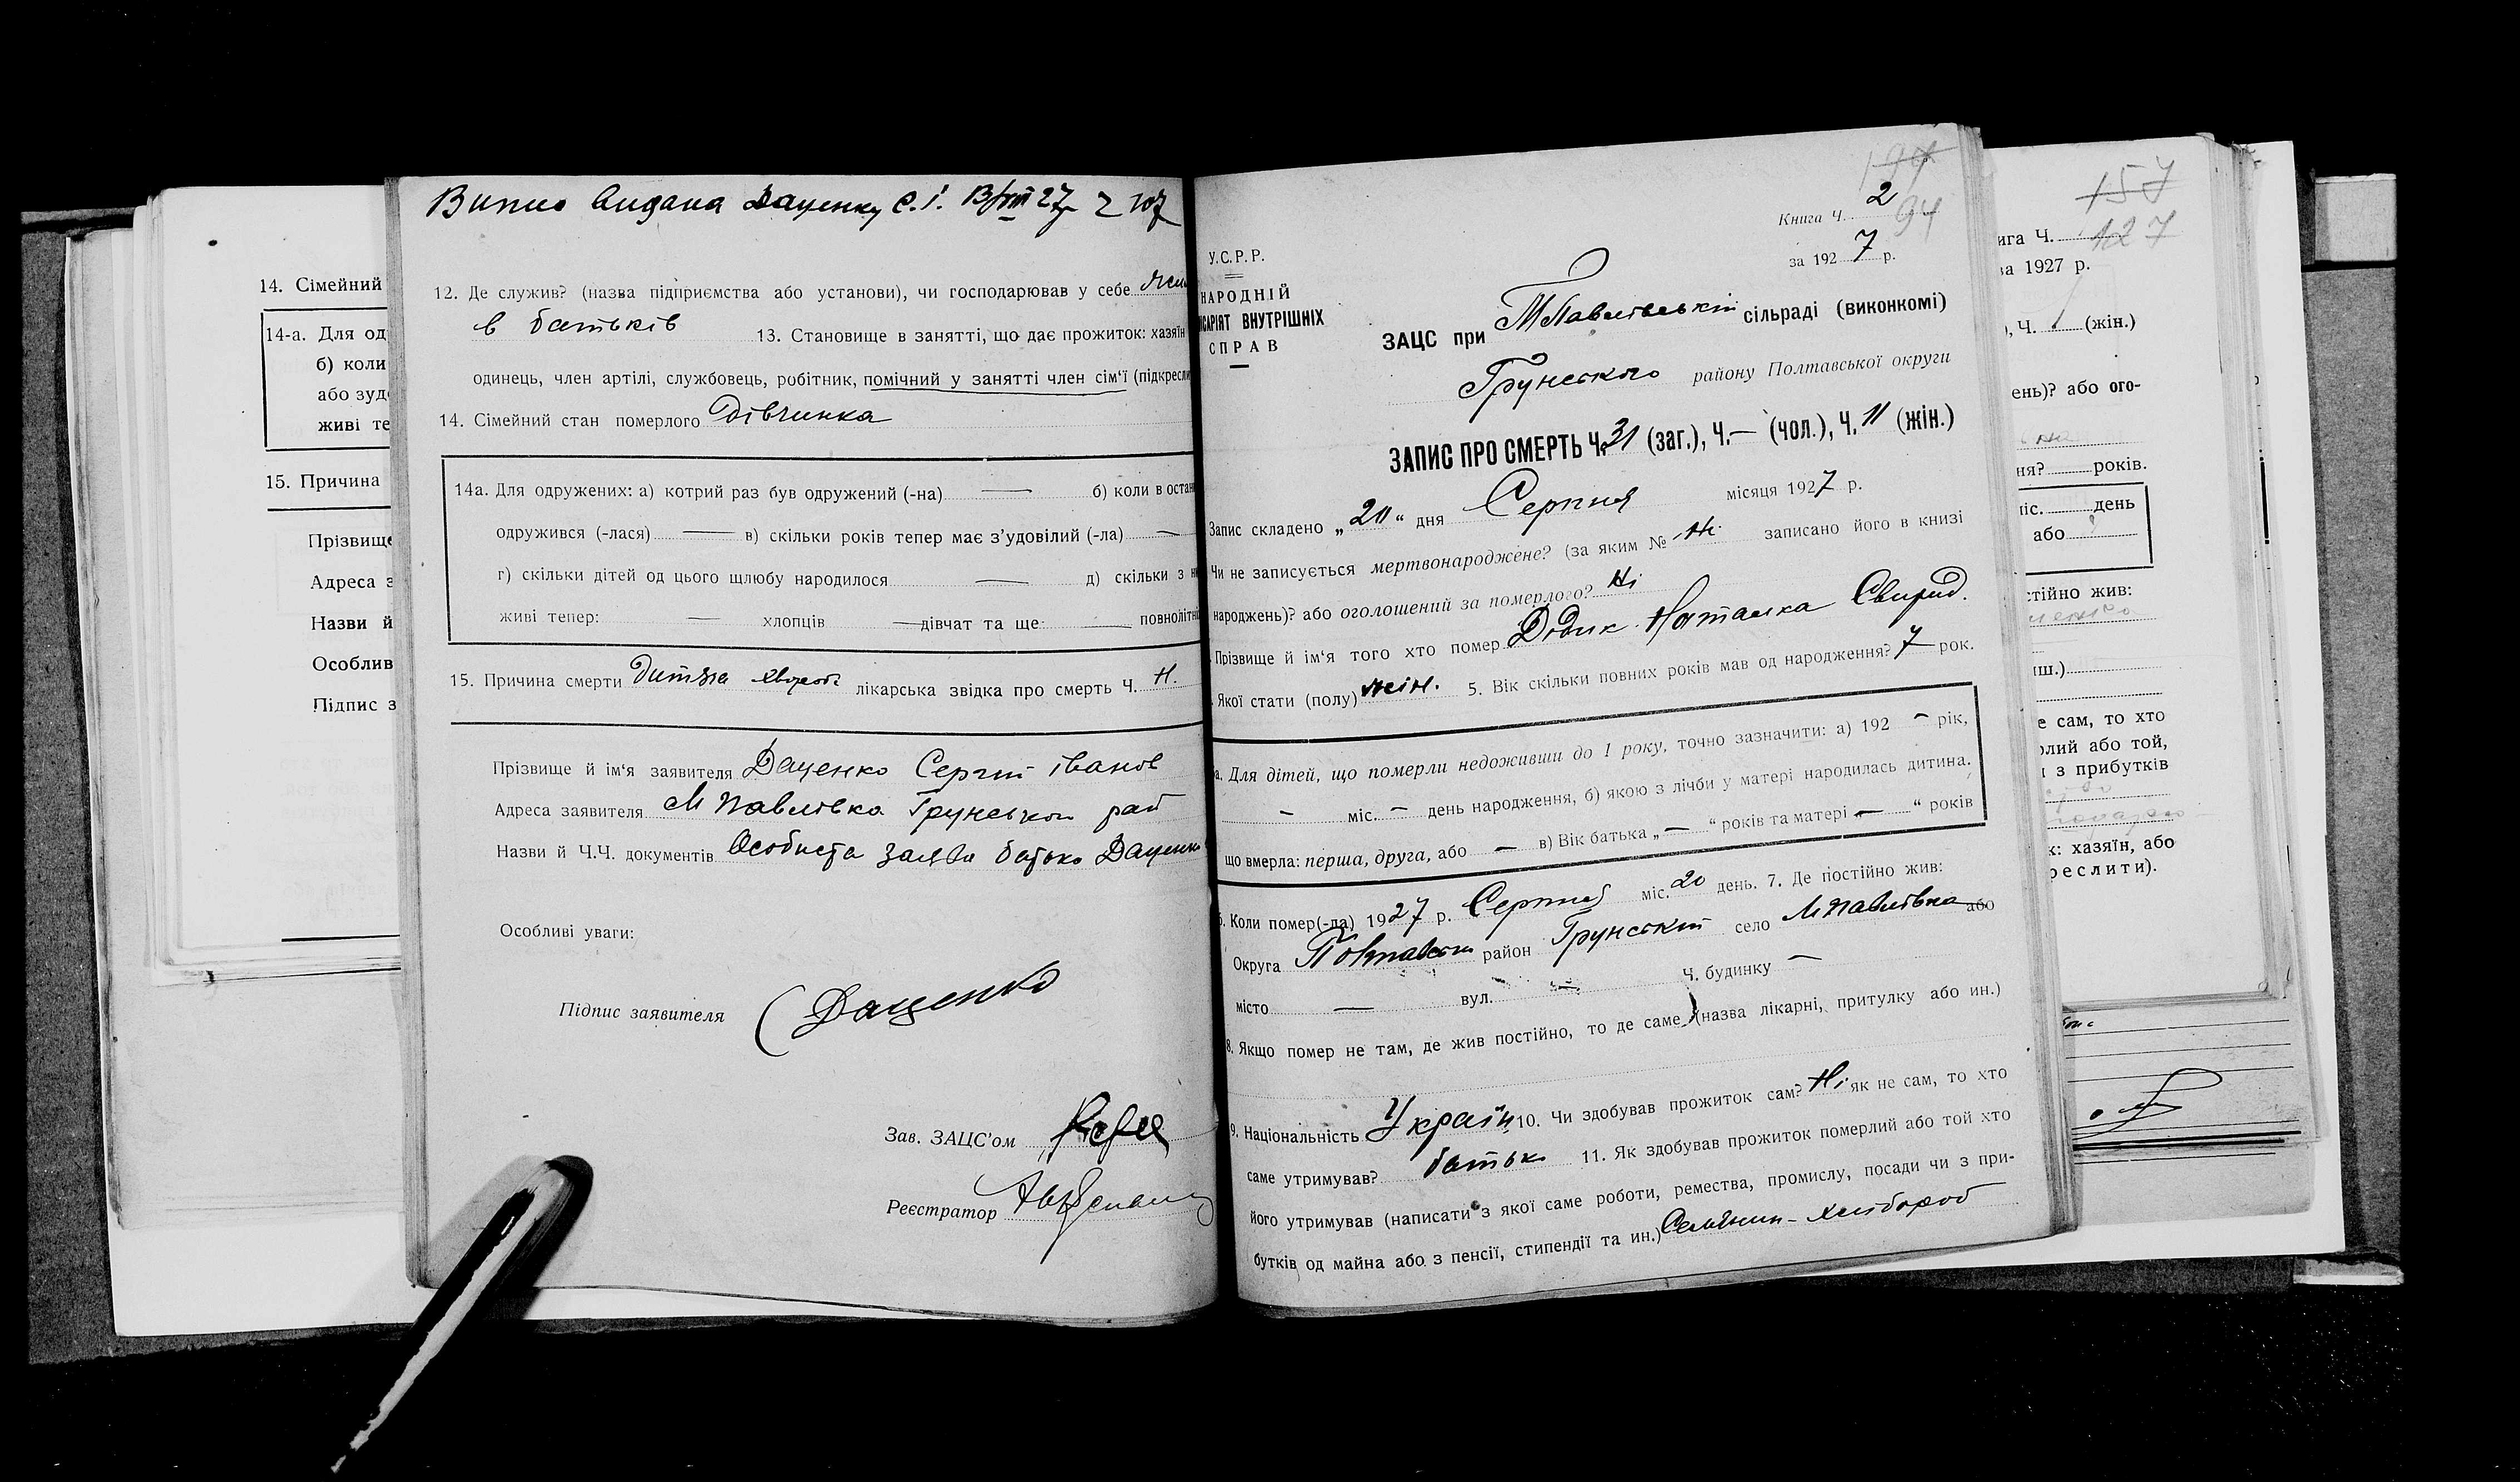 14. Сімейний
14-а. Для од
б) коли
або зуд
живі те
15. Причина
Прізвище
Адреса з
Назви й
Особлив
Підпис з
Видана Даценку С. І.
12. Де служив? (назва підприємства або установи), чи господарював у себе
в батьків 13. Становище в занятті, що дає прожиток: хазяїн
одинець, член артілі, службовець, робітник, помічний у занятті член сім'ї (підкресли
14. Сімейний стан померлого Дівчинка
14а. Для одружених: а) котрий раз був одружений (-на) — б) коли в остан
одружився (-лася) — в) скільки років тепер має з'удовілий (-ла) —
г) скільки дітей од цього щлюбу народилося — д) скільки з н
живі тепер: — хлопців — дівчат та ще — повнолітні
15. Причина смерти лікарська звідка про смерть Ч. Н.
Прізвище й ім'я заявителя Даценко Сергій Іванов
Адреса заявителя М Павлівка Грунськои рай
Назви й Ч.Ч. документів Особиста заява батько Даценко
Особливі уваги:
Підпис заявителя Даценко
Зав. ЗАЦС'ом
Реєстратор
197
Книга Ч. 2
94
за 1927 р.
У.С.Р.Р.
НАРОДНІЙ
ІСАРІЯТ ВНУТРІШНІХ
СПРАВ
ЗАЦС при МПавлівській сільраді (виконкомі)
Грунського району Полтавської округи
ЗАПИС ПРО СМЕРТЬ Ч. 31 (заг.), Ч. — (чол.), Ч. 11 (жін.)
Запис складено „ “ дня Серпня місяця 1927 р.
Чи не записується мертвонароджене? (за яким № Ні записано його в книзі
народжень)? або оголошений за померлого? Ні
Прізвище й ім'я того хто помер Наталка Свирид.
Якої стати (полу) жін. 5. Вік скільки повних років мав од народження? 7 рок.
а. Для дітей, що померли недоживши до 1 року, точно зазначити: а) 192 — рік,
— міс. — день народження, б) якою з лічби у матері народилась дитина.
що вмерла: перша, друга, або — в) Вік батька „—“ років та матері „—“ років
6. Коли помер(-ла) 1927 р. Серпня міс. 20 день. 7. Де постійно жив:
Округа Полтавськ район Грунський село М Павлівка або
місто — вул. — Ч. будинку —
8. Якщо помер не там, де жив постійно, то де саме (назва лікарні, притулку або ин.)
9. Національність Україн 10. Чи здобував прожиток сам? Ні як не сам, то хто
саме утримував? батьк 11. Як здобував прожиток померлий або той хто
його утримував (написати з якої саме роботи, ремества, промислу, посади чи з при-
бутків од майна або з пенсії, стипендії та ин.) Селянин - хлібороб
157
127
ига Ч.
за 1927 р.
), Ч. (жін.)
ень)? або ого-
ня? років.
міс. день
або
стійно жив:
иш.)
е сам, то хто
рлий або той,
з прибутків
к: хазяїн, або
реслити).